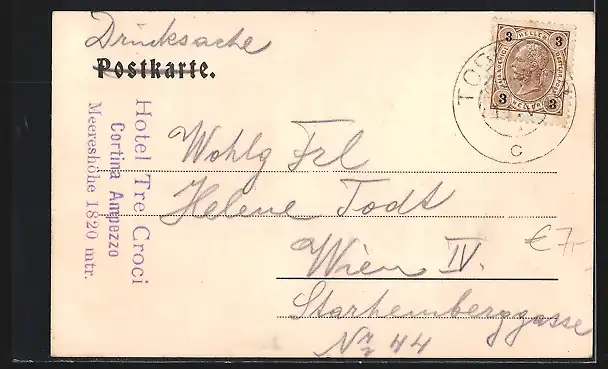 Drucksache
Postkarte.
Hotel Tre Croci
Cortina Ampezzo
Meereshöhe 1820 mtr.
3 HELLER 3
3 HELLER 3
TO
C
Wohlg Frl
Helene Todt
Wien IV.
Starhemberggasse
Nr 44
€7,-